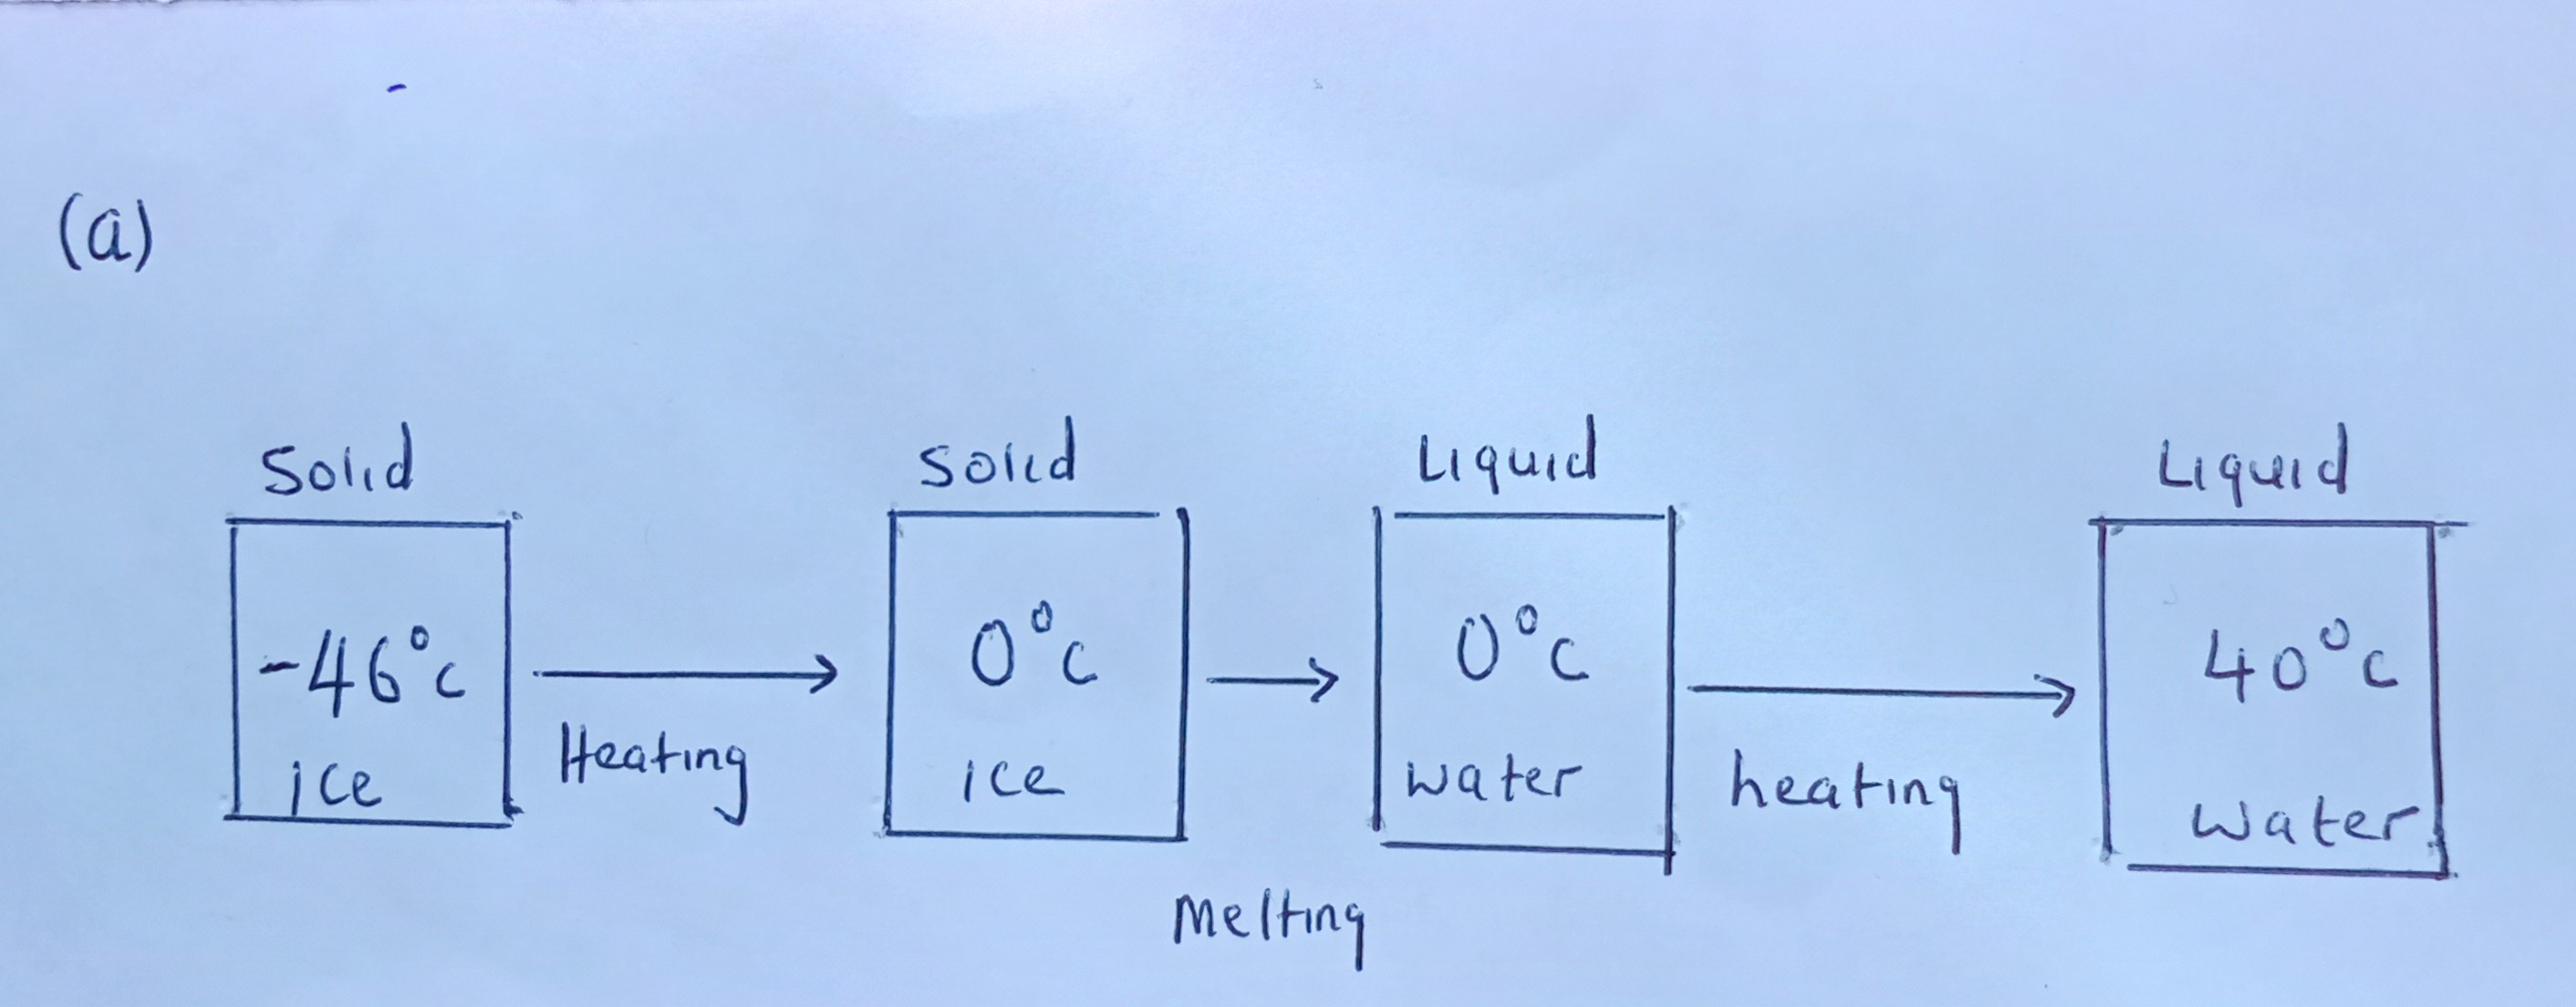 (a)
Solid
Solid
Liquid
Liquid
-46°c
ice
Heating
0°c
ice
Melting
0°c
water
heating
40°c
water